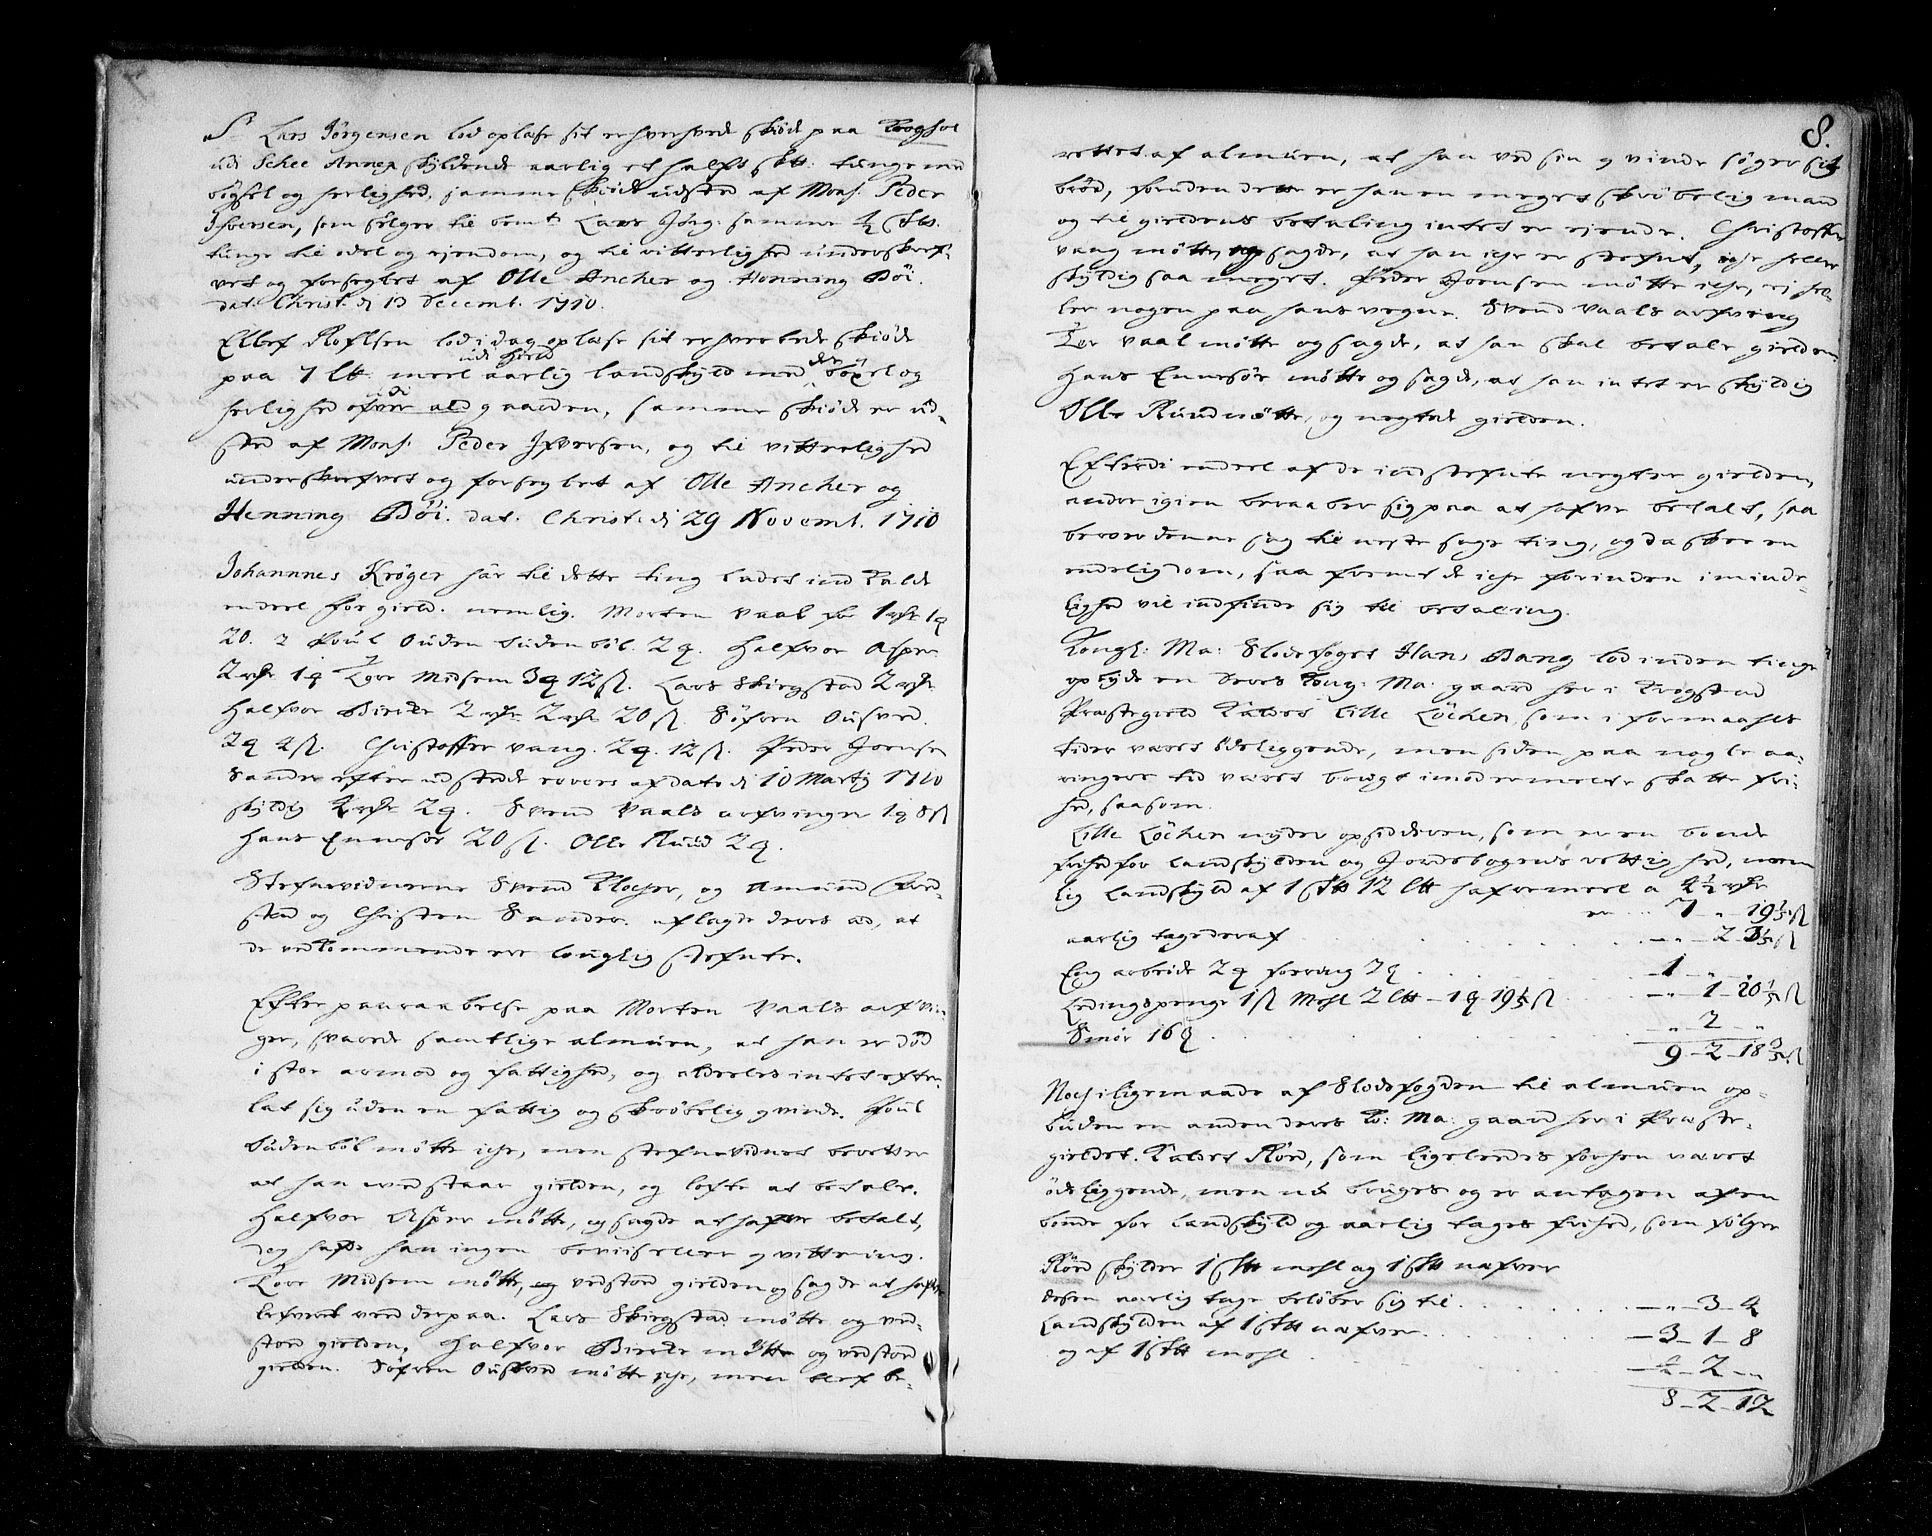 Sr Lars Jørgensen lod oplæse sit erhvervede skiøde paa Kroghol
udi Schee Annex skyldende aarlig et halft sktt. tunge med
bøgsel og herlighed, samme skiøde udsted af Mons. Peder
Ifversen, som sælger til bemte Lars Jørg: samme ½ sktt.
tunge til odel og ejendom, og til vitterlighed underskref-
vet og forseglet af Olle Ancher og Henning Bøi.
dat. Christ. d 13 Decemb. 1710.
Ellef Rolfsen lod i dag oplæse sit erhvervede skiøde
paa 7 ltt. meel aarlig landskyld med bøxel og
herlighed ofver ald gaarden, samme skiøde er ud-
sted af Mons. Peder Ifversen, og til vitterlighed
underskrefvet og forseglet af Olle Ancher og
Henning Bøi. dat. Christ. d 29 Novemb. 1710
Johannes Krøger har til dette ting ladet ind kalde
endeel for gield. nemlig. Morten Vaal for 1 rdr 1 q
20. Poul Sundenbøl 2 q. Halfvor Asper
2 rdr 1 q Tor Midsem 3 q 12 ß. Lars Skiegstad 2 rdr
Halfvor Bierke 2 rdr 2 20 ß Søfren Ousved.
2 q 4 ß. Christoffer vang. 2 q. 12 ß. Peder Joensen
Sander efter udstede revers af dato d 10 Martij 1710
skyldig 2 q. Svend Vaals arfvinger 1 q 8 ß
Hans Ennesør 20 ß. Olle Ruud 2 q.
Stefnevidnerne Svend Klocher, og Amund
sted og Christen Sander. aflagde deres æd, at
de vedkommende ere louglig stefnte.
Efter paaraabelse paa Morten Vaals arfvin-
ger, svarede samtlige almuen, at han er død
i stor armod og fattighed, og aldeeles intet efter-
lat sig uden en fattig og skrøbelig qvinde. Poul
Sudenbøl møtte iche, men stefnevidnet beretter
at han vedstaar gielden, og lofte at betale.
Halfvor Asper møtte, og sagde at hafve betalt,
dog hafde han ingen beviis eller qvittering.
Tor Midsem møtte, og vedstoed gielden og sagde at hafve
lefveret veed derpaa. Lars Skiegstad møtte og ved-
stoed gielden. Halfvor Bierke møtte og vedstoed
gielden. Søfren Ousved møtte iche, men blef be-
8.
rettet af almuen, at han ved sin qvinde søger sit
brød, foruden dette er han en meget skrøbelig mand
og til gieldens betaling intet er ejende. Christoffer
vang møtte, og sagde, at han iche er stefnt, iche heller
skyldig saa meget. Peder Joensen møtte iche, ej hel-
ler nogen paa hans vegne. Svend Vaals arfving
Tor Vaal møtte og sagde, at han skal betale gielden
Hans Ennesør møtte og sagde, at han intet er skyldig
Olle Ruud møtte, og negtede gielden.
Efterdi endeel af de indstefnte negter gielden,
andre igien beraaber sig paa at hafve betalt, saa
beroer denne sag til neste sage ting, og da skee en
endelig dom, saa fremt de iche forinden i minde-
lighed vil indfinde sig til betaling.
Kongl: Ma: Slodsfoget Hans Bang lod inden tinge
opbyde en deres Kong: Ma: gaard her i Trogstad
Præstegield kaldes Lille Løchen, som i formaals
tider været ødeliggende, men siden paa nogle aa-
ringers tid været brugt imod ermelte skatte fri-
hed, saasom.
Lille Løchen nyder opsidderen, som er en bonde
frihed for landskylden og Jordebogens rettighed, nem
lig Landskyld af 1 sktt 12 ltt hafvermeel a 4½ rdr
er 7 „ 19⅕ ß
aarlig tage deraf „ 2 3⅕ ß
Eng arbeide 2 q foering 2 q 1 „
Lædingspenge 1 ß Mehl 2 ltt – 1 q 19⅕ ß „ 1 20⅕ ß
Smør 16 „ 2 „
9 – 2 – 18 ß
Noch i ligemaade af Slodsfogden til almuen op-
buden en anden deres Ko: Ma: gaard her i Præste-
gieldet. kaldes Rørd, som ligeledes forhen været
ødeliggende, men nu bruges og er antagen af en
bonde for landskyld og aarlig tages frihed, som følger
Rørd skylder 1 sktt mehl og 1 sktt nafver
deraf aarlig tage beløber sig til – „ – 3 – 4
Landskylden af 1 sktt nafver – 3 – 1 – 8
og af 1 sktt mehl – 4 – 2 – „
8 – 2 – 12